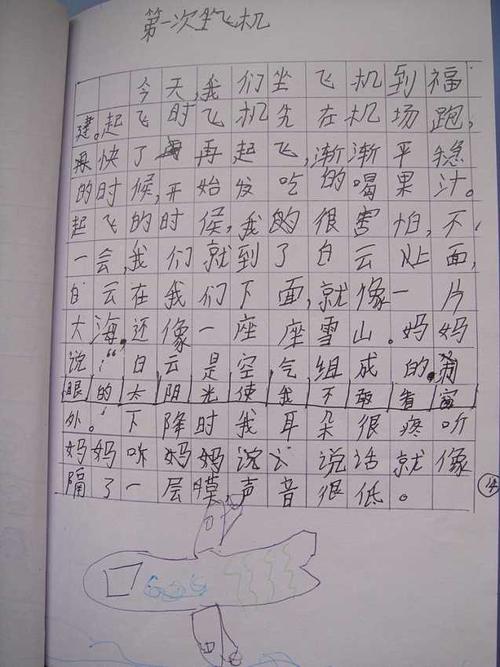 第一次坐飞机
今天,我们坐飞机到福
建。起飞时飞机先在机场跑,
快了再起飞,渐渐平稳
的时候,开始发吃的喝果汁。
起飞的时侯,我的很害怕,不
一会,我们就到了白云上面,
白云在我们下面,就像一片
大海,还像一座座雪山。妈妈
说:“白云是空气组成的。刺
眼的太阴光使我不敢看窗
外。下降时我耳朵很疼听
妈妈听妈妈说话说话就像
隔了一层膜,声音很低。